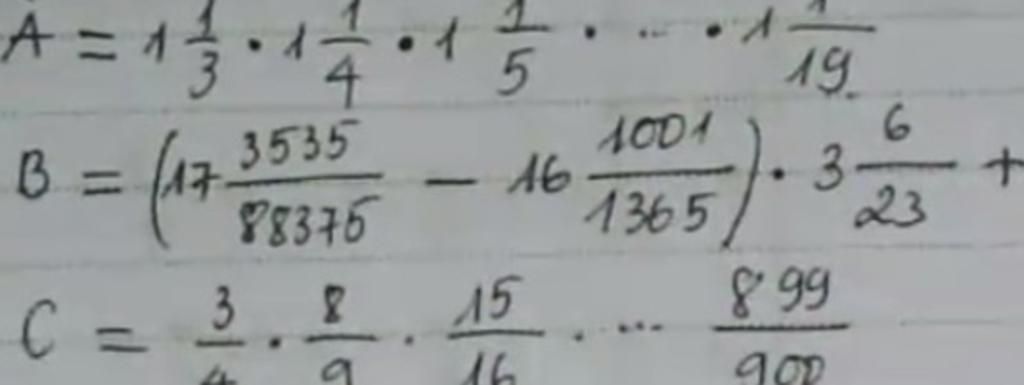 A = 1 1/3 · 1 1/4 · 1 1/5 · ... · 1 1/19
B = (17 3535/88375 − 16 1001/1365) · 3 6/23 +
C = 3/4 · 8/9 · 15/16 · ... 899/900